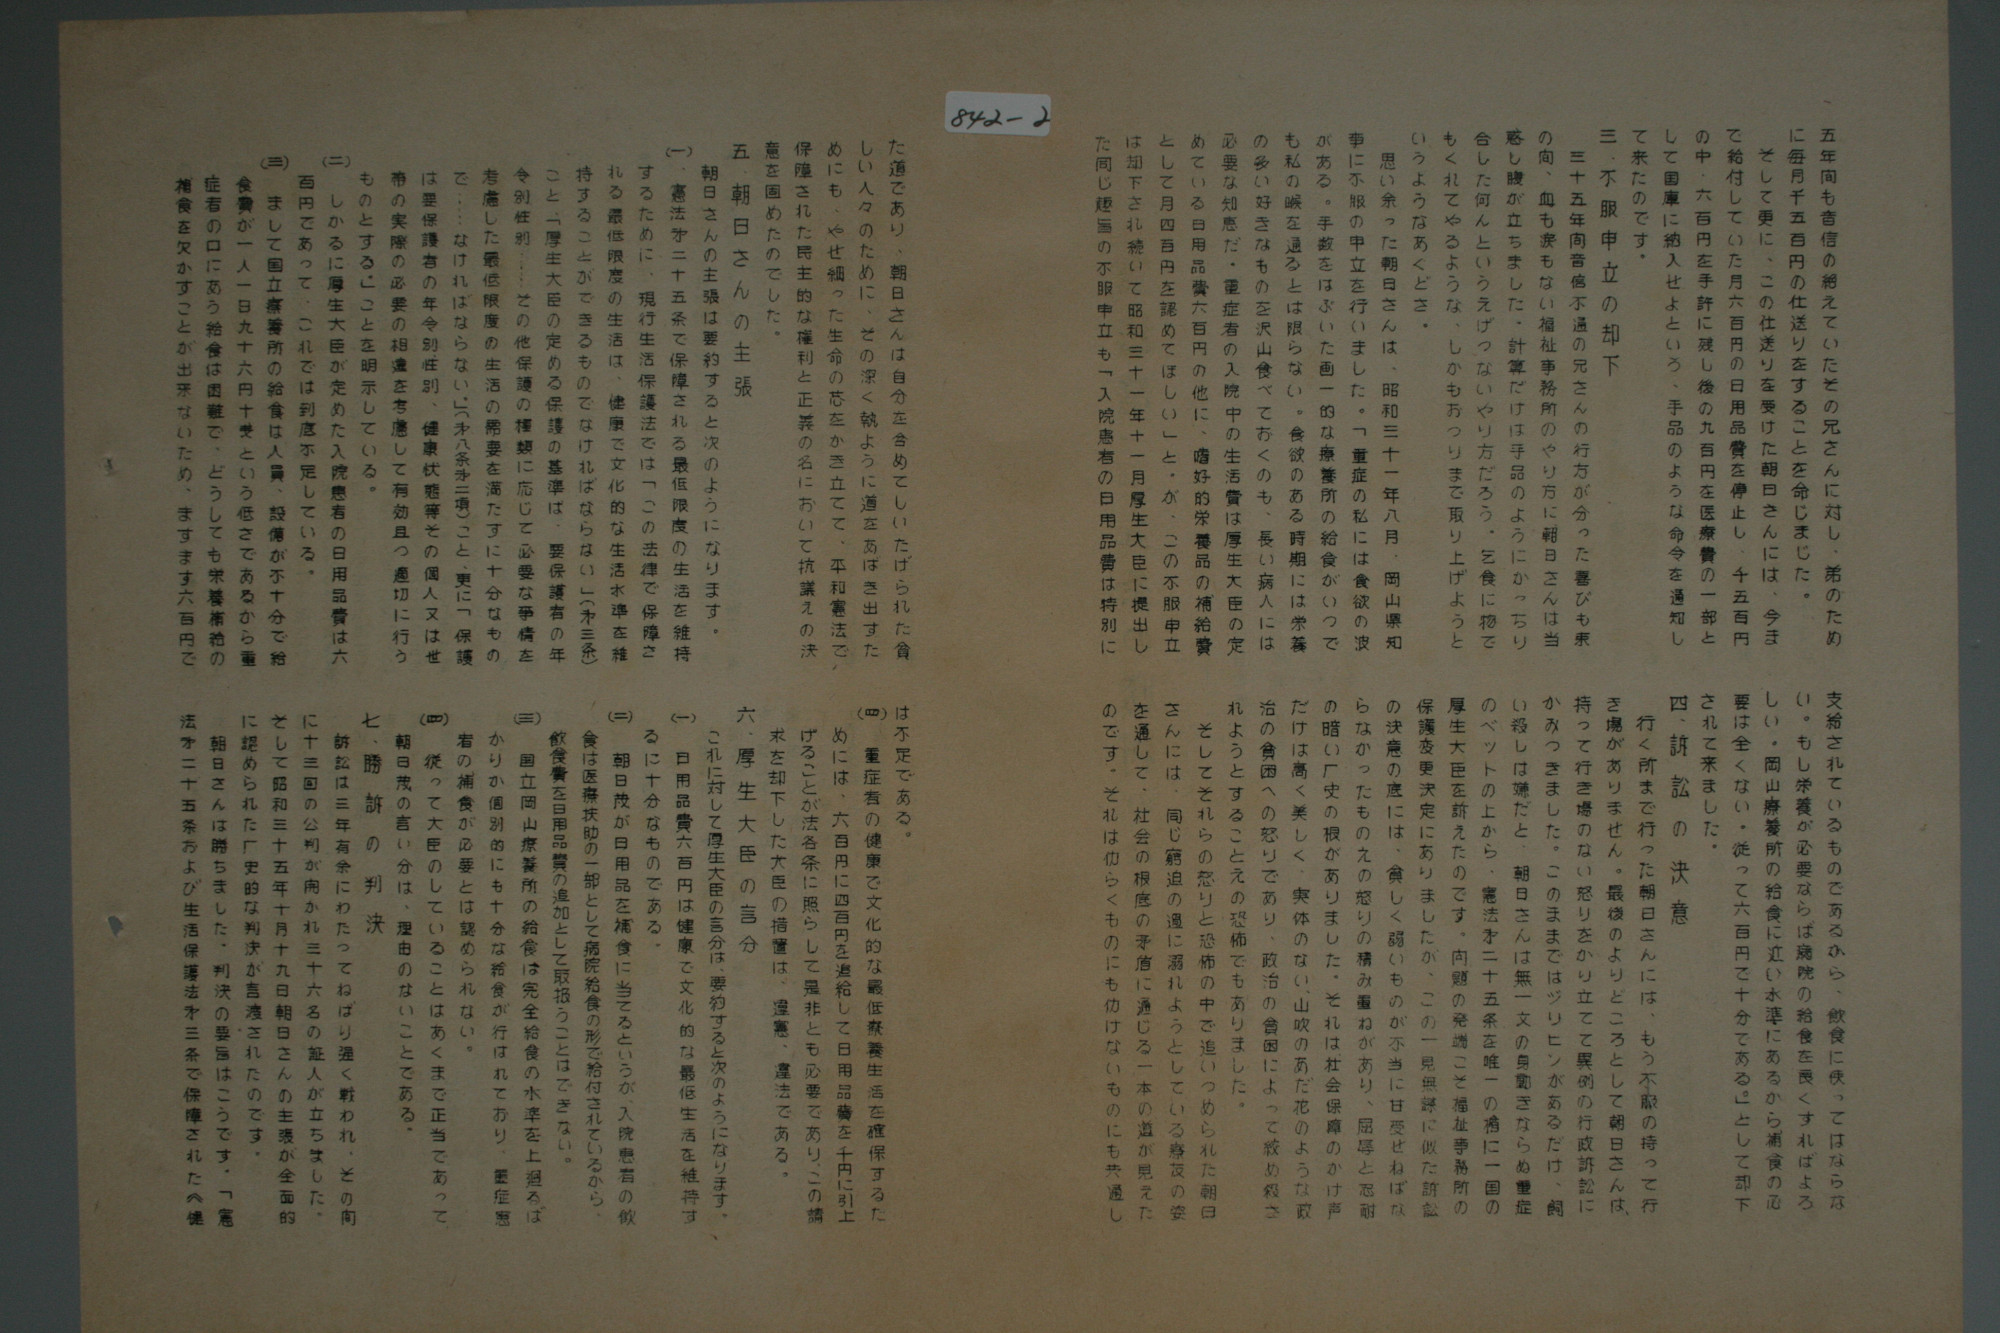 842-2
五年向も音信の絶えていたその兄さんに対し、弟のため
に毎月千五百円の仕送りをすることを命じました。
そして更に、この仕送りを受けた朝日さんには、今ま
で給付していた月六百円の日用品費を停止し、千五百円
の中、六百円を手許に残し後の九百円を医療費の一部と
して国庫に納入せよという、手品のような命令を通知し
て来たのです。
三、不服申立の却下
三十五年向音信不通の兄さんの行方が分った喜びも束
の向、血も涙もない福祉事務所のやり方に朝日さんは当
惑し腹が立ちました。計算だけは手品のようにかっちり
合した何んというえげつないやり方だろう。乞食に物で
もくれてやるような、しかもおつりまで取り上げようと
いうようなあくどさ。
思い余った朝日さんは、昭和三十一年八月、岡山県知
事に不服の申立を行いました。「重症の私には食欲の波
がある。手数をはぶいた画一的な療養所の給食がいつで
も私の喉を通るとは限らない。食欲のある時期には栄養
の多い好きなものを沢山食べておくのも、長い病人には
必要な知恵だ。重症者の入院中の生活費は厚生大臣の定
めている日用品費六百円の他に、嗜好的栄養品の補給費
として月四百円を認めてほしい」と。が、この不服申立
は却下され続いて昭和三十一年十一月厚生大臣に提出し
た同じ趣旨の不服申立も「入院患者の日用品費は特別に
支給されているものであるから、飲食に使ってはならな
い。もし栄養が必要ならば病院の給食を良くすればよろ
しい。岡山療養所の給食に近い水準にあるから補食の必
要は全くない。従って六百円で十分である。」として却下
されて来ました。
四、訴訟の決意
行く所まで行った朝日さんには、もう不服の持って行
き場がありません。最後のよりどころとして朝日さんは、
持って行き場のない怒りをかり立てて異例の行政訴訟に
かみつきました。このままではジリヒンがあるだけ、飼
い殺しは嫌だと、朝日さんは無一文の身動きならぬ重症
のベットの上から、憲法才二十五条を唯一の楯に一国の
厚生大臣を訴えたのです。向題の発端こそ福祉事務所の
保護変更決定にありましたが、この一見無謀に似た訴訟
の決意の底には、貧しく弱いものが不当に甘受せねばな
らなかったものえの怒りの積み重ねがあり、屈辱と忍耐
の暗い厂史の根がありました。それは社会保障のかけ声
だけは高く美しく、実体のない、山吹のあだ花のような政
治の貧困への怒りであり、政治の貧困によって絞め殺さ
れようとすることえの恐怖でもありました。
そしてそれらの怒りと恐怖の中で追いつめられた朝日
さんには、同じ窮迫の過に溺れようとしている療友の姿
を通して、社会の根底の矛盾に通じる一本の道が見えた
のです。それは仂らくものにも仂けないものにも共通し
た道であり、朝日さんは自分を含めてしいたげられた貧
しい人々のために、その深く執ように道をあばき出すた
めにも、やせ細った生命の芯をかき立てて、平和憲法で
保障された民主的な権利と正義の名において抗議えの決
意を固めたのでした。
五、朝日さんの主張
朝日さんの主張は要約すると次のようになります。
(一)、憲法才二十五条で保障される最低限度の生活を維持
するために、現行生活保護法では「この法律で保障さ
れる最低限度の生活は、健康で文化的な生活水準を維
持することができるものでなければならない」(才三条)
こと、「厚生大臣の定める保護の基準は、要保護者の年
令別性別……その他保護の種類に応じて必要な事情を
考慮した最低限度の生活の需要を満たすに十分なもの
で……なければならない。」(才八条才二項)こと、更に「保護
は要保護者の年令別性別、健康状態等その個人又は世
帯の実際の必要の相違を考慮して有効且つ適切に行う
ものとする。」ことを明示している。
(二) しかるに厚生大臣が定めた入院患者の日用品費は六
百円であって、これでは到底不足している。
(三) まして国立療養所の給食は人員、設備が不十分で給
食費が一人一日九十六円十銭という低さであるから重
症者の口にあう給食は困難で、どうしても栄養補給の
補食を欠かすことが出来ないため、ますます六百円で
は不足である。
(四) 重症者の健康で文化的な最低療養生活を確保するた
めには、六百円に四百円を追給して日用品費を千円に引上
げることが法各条に照らして是非とも必要であり、この請
求を却下した大臣の措置は、違憲、違法である。
六、厚生大臣の言分
これに対して厚生大臣の言分は、要約すると次のようになります。
(一) 日用品費六百円は健康で文化的な最低生活を維持す
るに十分なものである。
(二) 朝日茂が日用品を補食に当てるというが、入院患者の飲
食は医療扶助の一部として病院給食の形で給付されているから、
飲食費を日用品費の追加として取扱うことはできない。
(三) 国立岡山療養所の給食は完全給食の水準を上廻るば
かりか個別的にも十分な給食が行はれており、重症患
者の補食が必要とは認められない。
(四) 従って大臣のしていることはあくまで正当であって
朝日茂の言い分は、理由のないことである。
七、勝訴の判決
訴訟は三年有余にわたってねばり強く戦われ、その向
に十三回の公判が向かれ三十六名の証人が立ちました。
そして昭和三十五年十月十九日朝日さんの主張が全面的
に認められた厂史的な判決が言渡されたのです。
朝日さんは勝ちました。判決の要旨はこうです。「憲
法才二十五条および生活保護法才三条で保障された《健